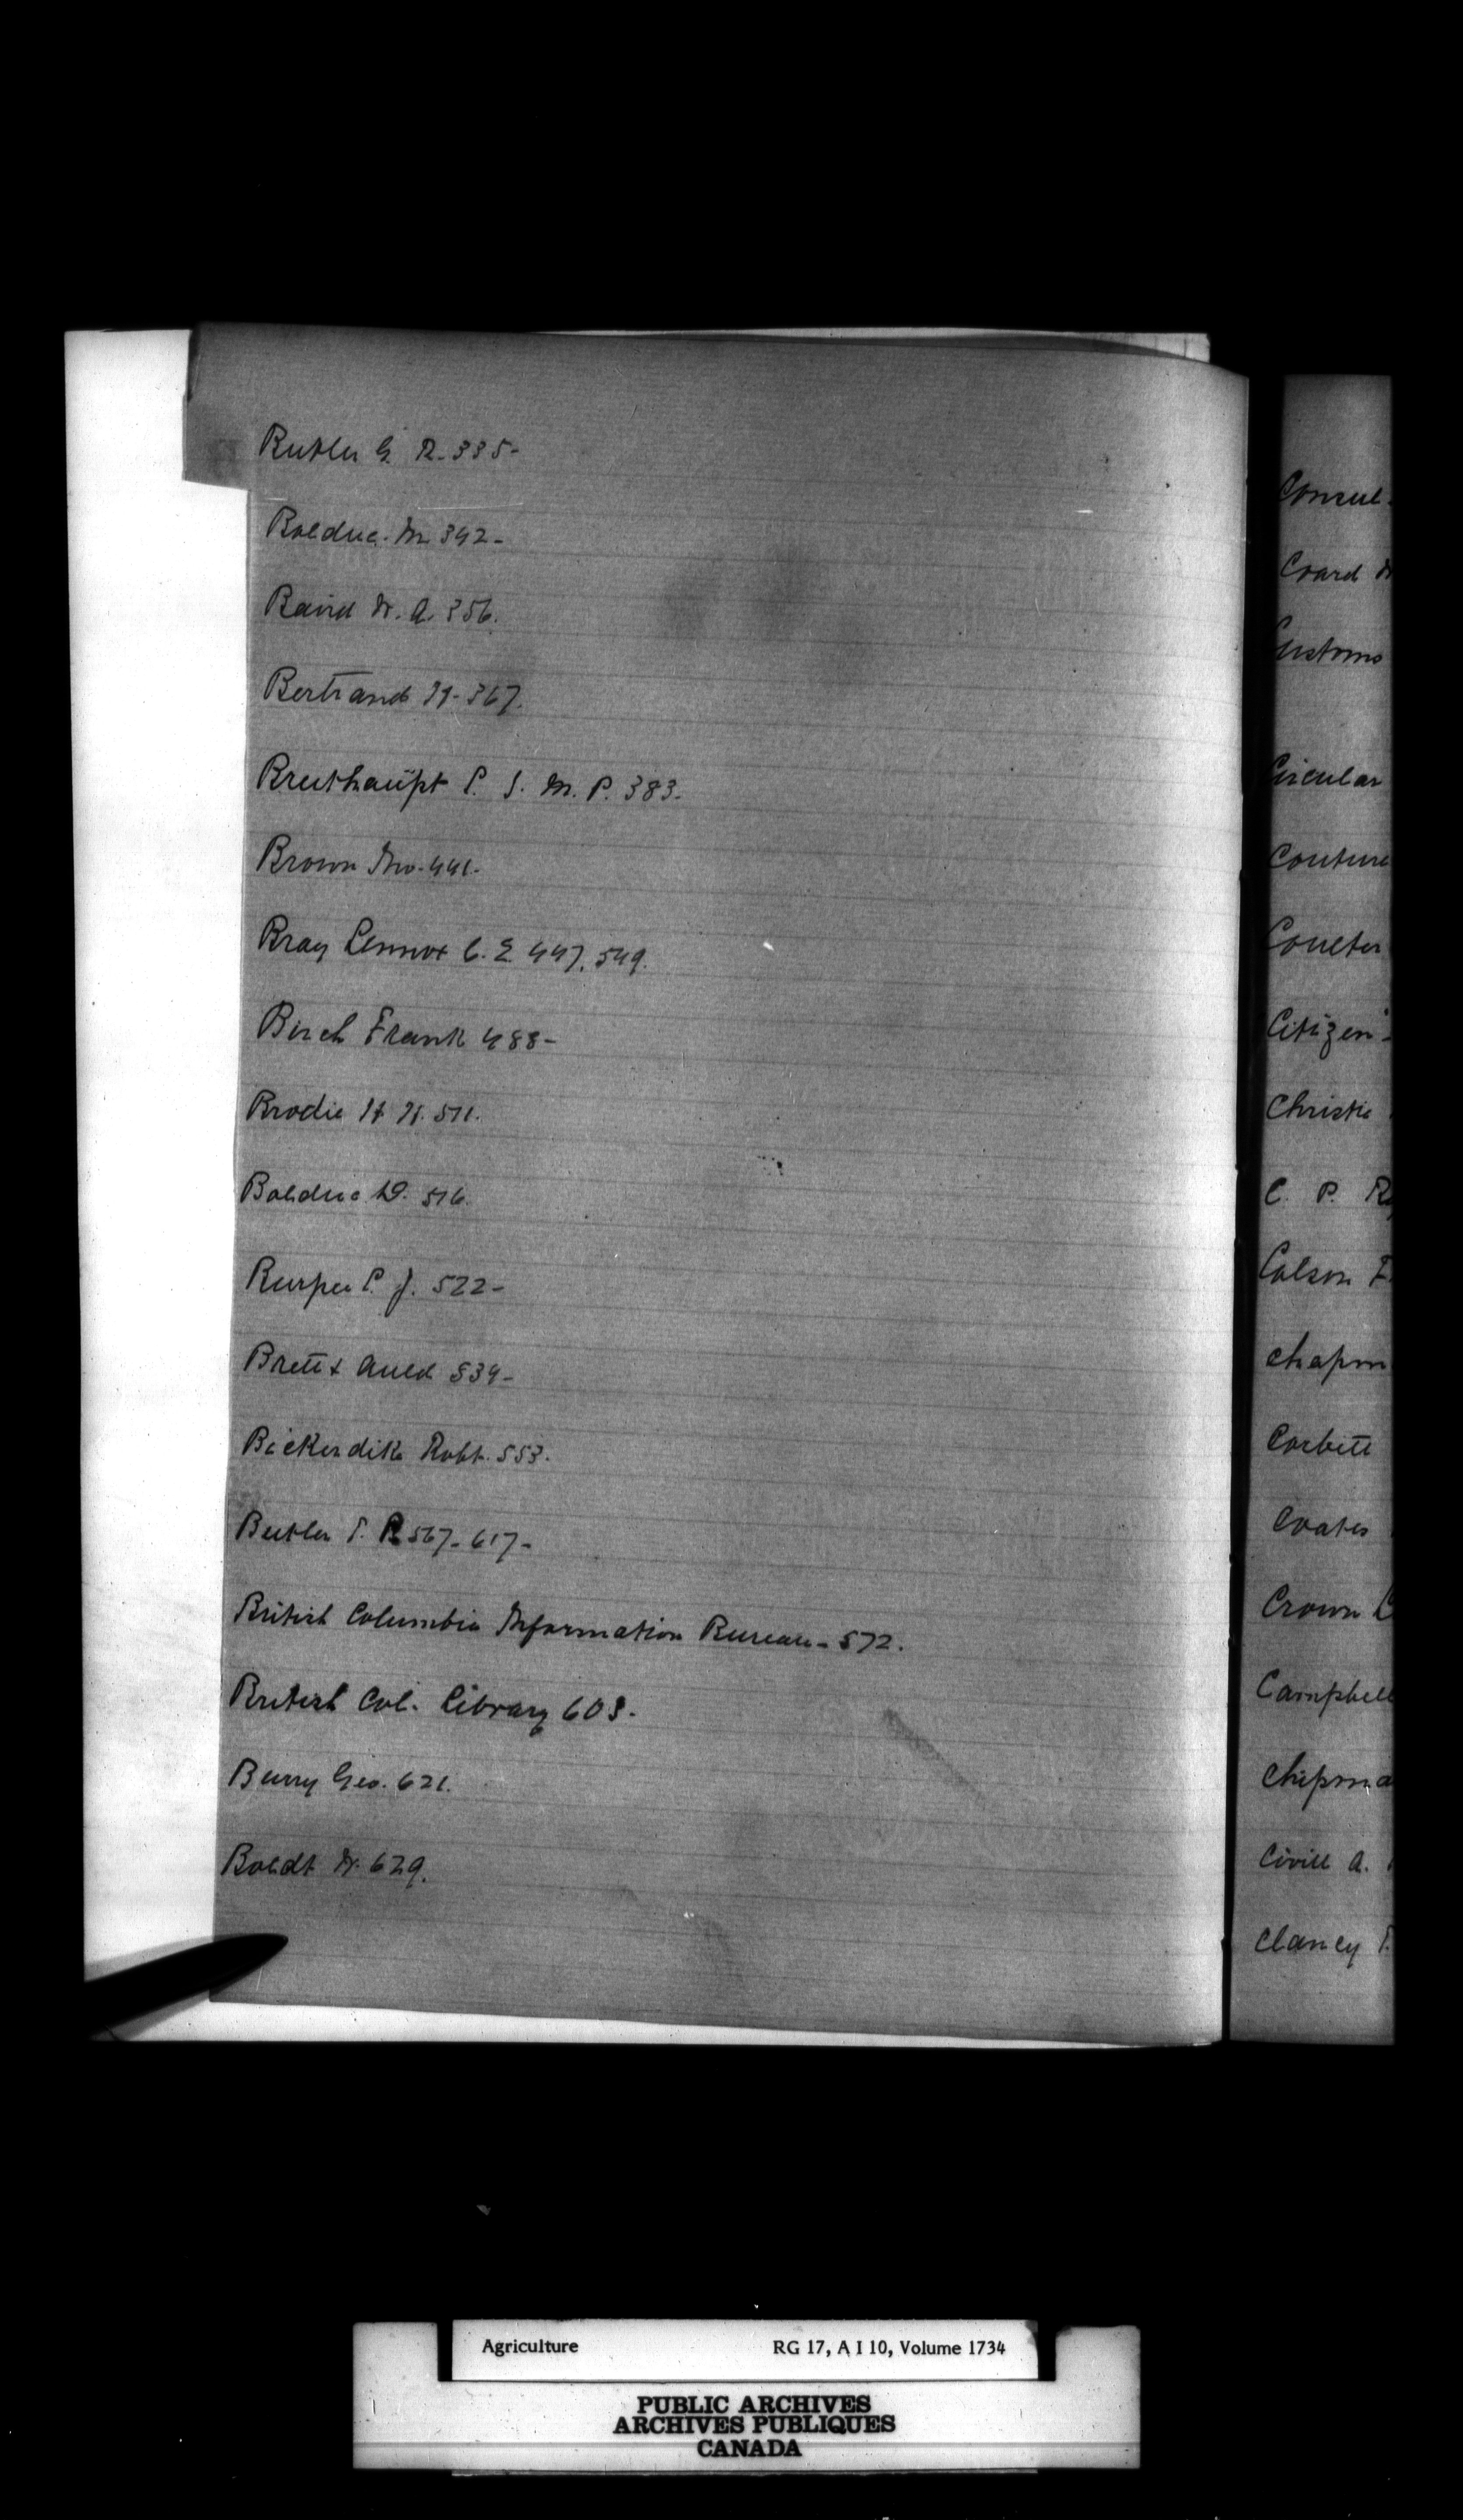 Butler G. R. 335-
Bolduc. M 342-
Baird W. A. 356.
Bertrand H- 367.
Breithaupt P. S. M. P. 383.
Brown Jno. 441.
Bray Lennox C. E. 447, 549.
Birch Frank 488-
Brodie H H. 511.
Bolduc D. 516.
Burpee P. J. 522-
Brett & Auld 534-
Bickerdike Robt. 553.
Butler T. R 567- 617-
British Columbia Information Bureau- 572.
British Col. Library 603.
Burry Geo. 621.
Boldt W. 629.
Consul.
Coard W
Customs
Circular
Couture
Coulter
Citizen-
Christie
C. P. Ry
Colson F.
Chapm
Corbett
Coates
Crown L
Campbell
Chipma
Civill A.
Clancy T.
Agriculture RG 17, A I 10, Volume 1734
PUBLIC ARCHIVES
ARCHIVES PUBLIQUES
CANADA